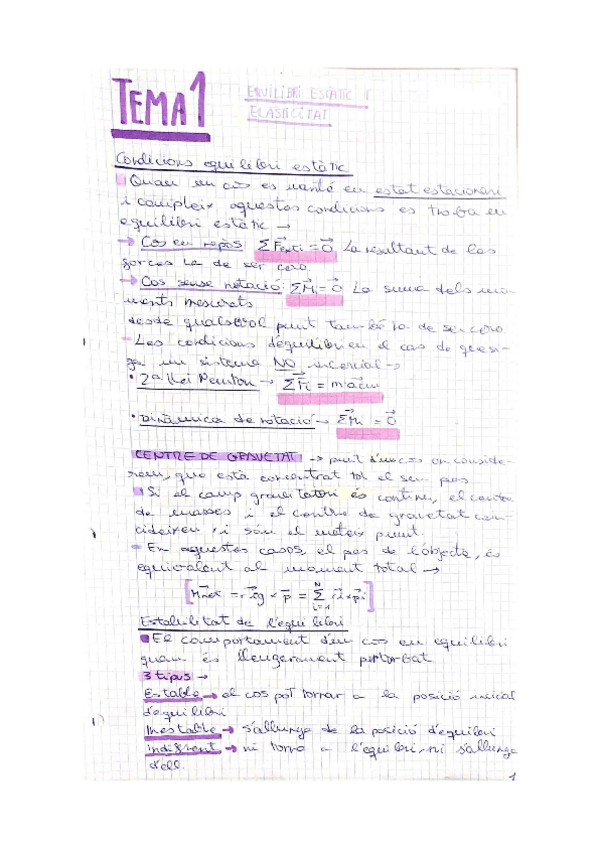 TEMA 1
EQUILIBRI ESTÀTIC I
ELASTICITAT
Condicions equilibri estàtic
Quan un cos es manté en estat estacionari
i compleix aquestes condicions es troba en
equilibri estàtic →
→ Cos en repòs: ΣF⃗ext i = 0⃗ La resultant de les
forces ha de ser cero.
→ Cos sense rotació: ΣM⃗i = 0⃗ La suma dels mo-
ments mesurats
desde qualsevol punt també ha de ser cero.
- Les condicions d'equilibri en el cas de que si-
gui un sistema NO inercial →
• 2ª Llei Newton → ΣF⃗i = m·a⃗cm
• Dinàmica de rotació → ΣM⃗i = 0⃗
CENTRE DE GRAVETAT → punt d'un cos on conside-
rem, que està concentrat tot el seu pes
Si el camp gravitatori és continu, el centre
de masses i el centre de gravetat coin-
cideixen, i són el mateix punt.
- En aquestos casos, el pes de l'objecte, és
equivalent al moment total →
[M⃗net = r⃗cg × p⃗ = Σ r⃗i × p⃗i] N i=1
Estabilitat de l'equilibri
El comportament d'un cos en equilibri
quan és lleugerament pertorbat
3 tipus →
Estable → el cos pot tornar a la posició inicial
d'equilibri
Inestable → s'allunya de la posició d'equilibri
indiferent → ni torna a l'equilibri, ni s'allunya
d'ell.
1